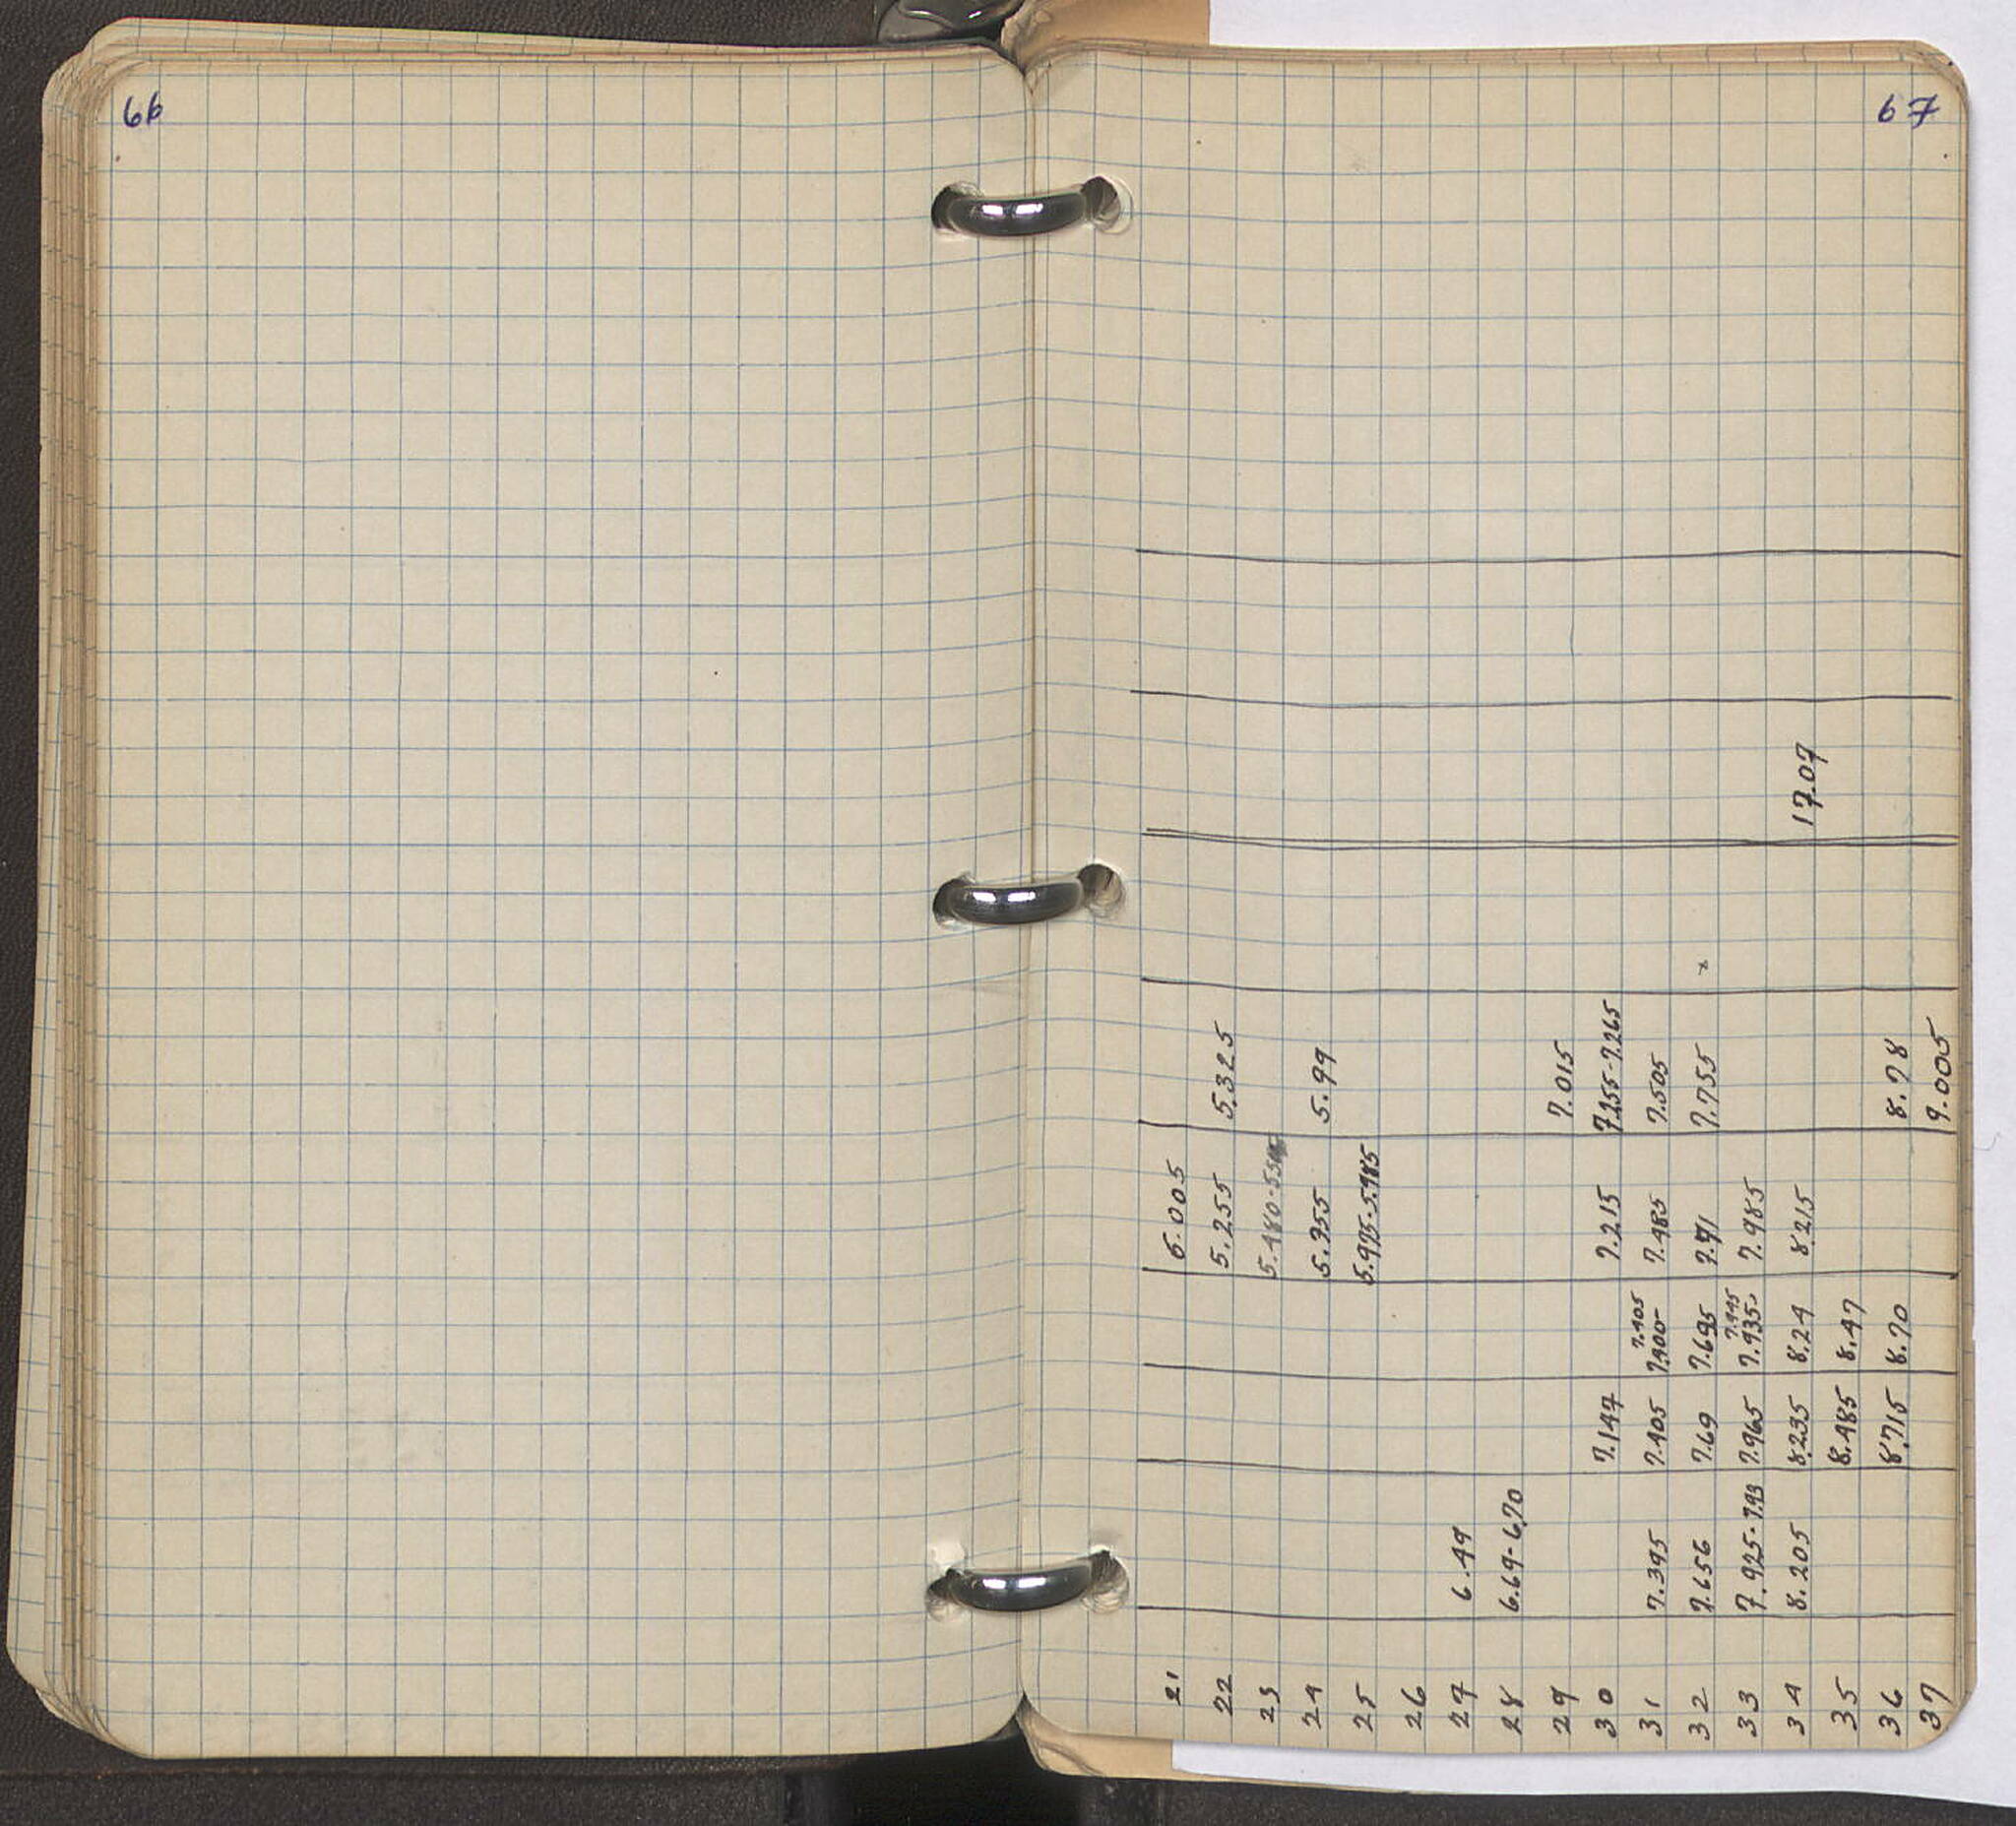 66
67
21 5.005
22 5.255 5.325
23
24 5.355 5.99
25 5.975-5.985
26
27 6.49
28 6.69-6.70
29 7.015
30 7.147 7.215 7.255-7.265
31 7.395 7.405 7.400-7.405 7.485 7.505
32 7.656 7.69 7.695 7.71 7.755 x
33 7.925-7.93 7.965 7.935-7.945 7.985
34 8.205 8.235 8.24 8.215 17.07
35 8.485 8.47
36 8.715 8.70 8.78
37 9.005